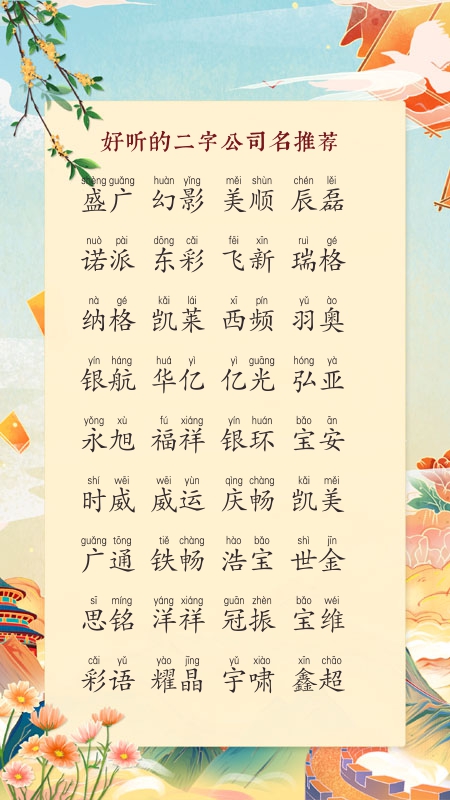 好听的二字公司名推荐
shèng guǎng huàn yǐng měi shùn chén lěi
盛广 幻影 美顺 辰磊
nuò pài dōng cǎi fēi xīn ruì gé
诺派 东彩 飞新 瑞格
nà gé kǎi lái xī pín yǔ ào
纳格 凯莱 西频 羽奥
yín háng huá yì yì guāng hóng yà
银航 华亿 亿光 弘亚
yǒng xù fú xiáng yín huán bǎo ān
永旭 福祥 银环 宝安
shí wēi wēi yùn qìng chàng kǎi měi
时威 威运 庆畅 凯美
guǎng tōng tiě chàng hào bǎo shì jīn
广通 铁畅 浩宝 世金
sī míng yáng xiáng guān zhèn bǎo wéi
思铭 洋祥 冠振 宝维
cǎi yǔ yào jīng yǔ xiào xīn chāo
彩语 耀晶 宇啸 鑫超